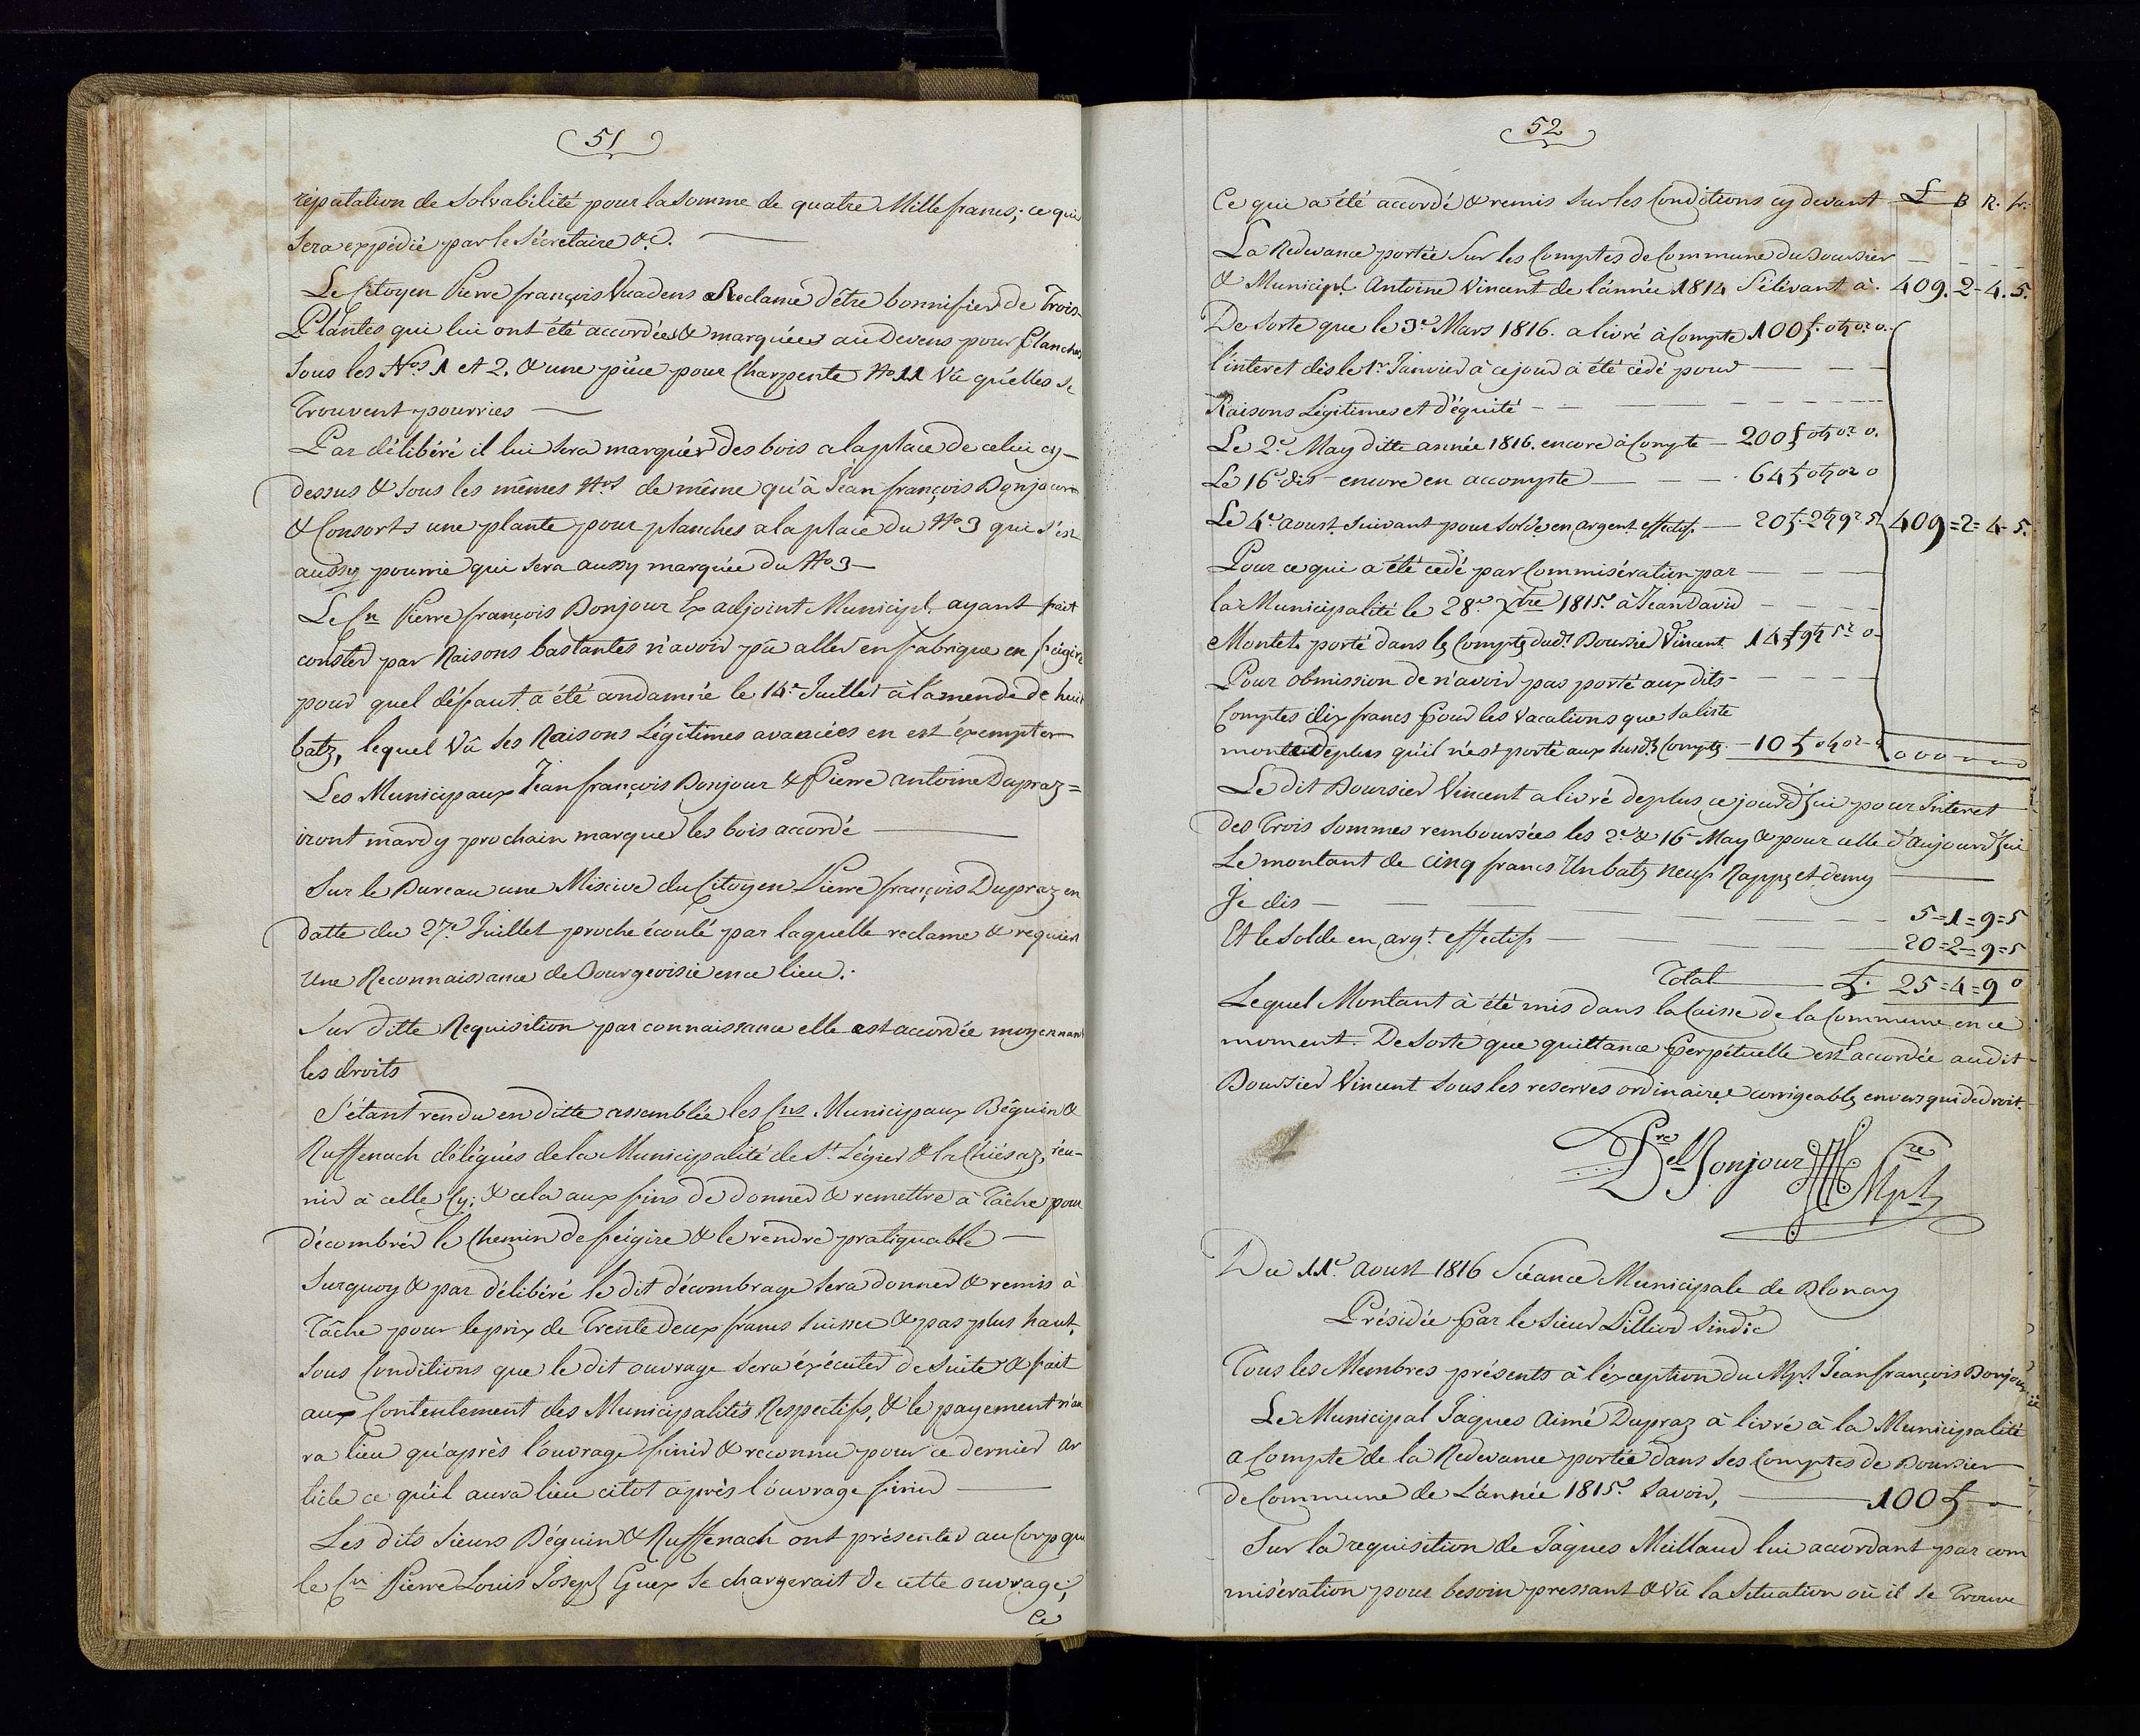 51
réputation de Solvabilité pour la Somme de quatre Mille francs; ce qui
Sera expédié par le Sécretaire &.C.
Le Citoyen Pierre françois Vuadens Reclame d'être bonnifier de Trois
Plantes qui lui ont été accordées & marquées au Devens pour Planches
Sous les Nos 1 et 2. & une pièce pour Charpente No 11 Vû qu'elles se
Trouvent pourries
Par délibéré il lui Sera marquér des bois a la place de celui cy-
dessus & Sous les mêmes Nos de même qu'à Jean françois Bonjour
& Consorts une plante pour planches a la place du No 3 qui s'est
aussy pourrie qui Sera aussy marquée du No 3
Le Cn Pierre françois Bonjour Ex adjoint Municipl. ayant fait
conster par Raisons bastantes n'avoir pû aller en fabrique en feigire
pour quel défaut a été condamné le 14e Juillet à l'amende de huit
batz, lequel Vû Ses Raisons Légitimes avancées en est éxempter
Les Municipaux Jean françois Bonjour & Pierre antoine Dupraz=
iront mardy prochain marquer les bois accordé
Sur le Bureau une Missive du Citoyen Pierre françois Dupraz en
datte du 27e Juillet proche écoulé par laquelle reclame & requiert
Une Reconnaissance de Bourgeoisie en ce lieu.
Sur ditte Requisition par connaissance elle est accordée moyennant
les droits
S'étant rendu en ditte assemblée les Cns. Municipaux Béguin &
Ruffenach délégués de la Municipalité de St Légier & la Chiésaz, réu-
nir à celle Cy; & cela aux fins de donner & remettre à Tâche pour
décombrér le Chemin de feigire & le rendre pratiquable
Surquoy & par délibéré le dit décombrage Sera donner & remis à
Tâche pour le prix de Trente deux francs Suisses & pas plus haut,
Sous Conditions que le dit ouvrage Sera éxécuter de Suite & fait
aux Contentement des Municipalités Respectifs, & le payement n'au
ra lieu qu'après l'ouvrage finir & reconnu pour ce dernier ar
ticle ce qu'il aura lieu citot après l'ouvrage finir
Les dits Sieurs Béguin & Ruffenach ont présenter au Corp que
le Cn Pierre Louis Joseph Guex Se chargerait de cette ouvrage,
Ce
52
Ce qui a été accordé & remis Sur les Conditions cy devant £ B R. fr.
La Redevance portée Sur les Comptes de Commune du Boursier
& Municipl. Antoine Vincent de l'année 1814 S'élévant à. 409. 2-4.5.
De Sorte que le 3e Mars 1816. a livré à Compte 100 £. o h o r. o.
l'interet dès le 1r Janvier à ce jour a été cédé pour
Raisons Légitimes et d'équité
Le 2e May ditte année 1816. encore à Compte 200 £ o h o r o.
Le 16e dis encore en accompte 64 £ o h o r o
Le 4e aoust Suivant pour Solde en argent effectif. 20 £. 2 h 9 r 5 409=2=4-5.
Pour ce qui a été cédé par Commisération par
la Municipalité le 28e Xbre 1815. à Jean David
Montet porté dans les Comptes dudt Boursier Vincent 14 £ 9 h 5 r o
Pour obmission de n'avoir pas porté aux dits
Comptes dix francs pour les Vacations que Sa liste
monte de plus qu'il n'est porté aux Susdts Comptes. 10 £ o h o r o 000
Le dit Boursier Vincent a livré deplus ce jourd'hui pour Interet
des Trois Sommes remboursées les 2e & 16 May & pour celle d'aujourd'hui
Le montant de cinq francs Un batz neuf Rappes et demy
Je dis 5=1=9=5
Et le Solde en argt. effectifs 20=2=9=5
Total £. 25=4=9 o
Lequel Montant à été mis dans la Caisse de la Commune en ce
moment. De Sorte que quittance perpétuelle est accordée au dit
Boursier Vincent Sous les reserves ordinaires corrigeables envers qui de droit.
Bonjour Sre Mpl
Du 11e aoust 1816 Séance Municipale de Blonay
Présidée par le Sieur Pilliod Sindic
Tous les Membres présents à l'éxception du Mpl. Jean françois Bonjour
Le Municipal Jaques aimé Dupraz à livré à la Municipalité
a Compte de la Redevance portée dans Ses Comptes de Boursier
de Commune de L'année 1815. Savoir, 100 £
Sur la requisition de Jaques Meillaud lui accordant par com
misération pour besoin pressant & Vû la Situation où il Se Trouve